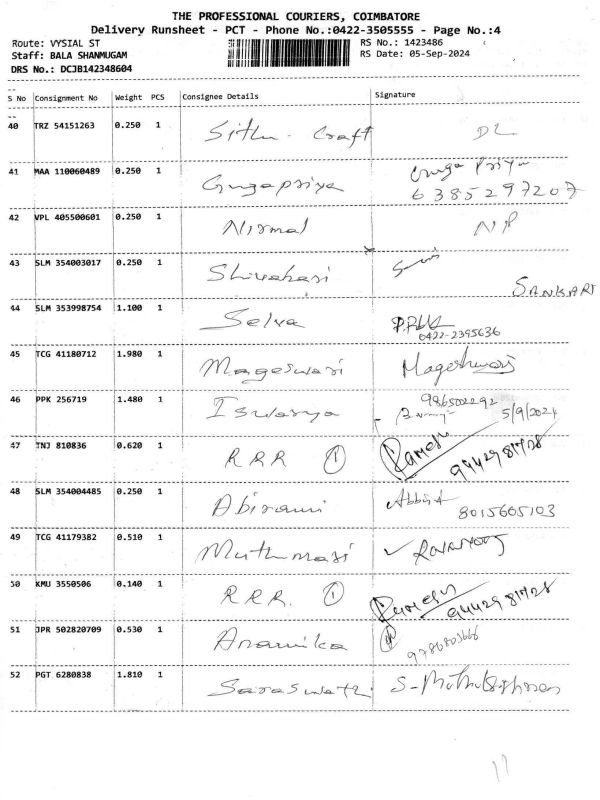 THE PROFESSIONAL COURIERS, COIMBATORE
Delivery Runsheet - PCT - Phone No.:0422-3505555 - Page No.:4
Route: VYSIAL ST RS No.: 1423486
Staff: BALA SHANMUGAM RS Date: 05-Sep-2024
DRS No.: DCJB142348604
S No Consignment No Weight PCS Consignee Details Signature
40 TRZ 54151263 0.250 1 Sithu Craft
41 MAA 110060489 0.250 1 Gugapriya Guga Priya
6385297207
42 VPL 405500601 0.250 1 Nirmal
43 SLM 354003017 0.250 1 Shivahari
SANKARI
44 SLM 353998754 1.100 1 Selva
0422-2395636
45 TCG 41180712 1.980 1 Mageswari Mageshwari
46 PPK 256719 1.480 1 Iswarya 986502292
5/9/2024
47 TNJ 810836 0.620 1 RRR 1 Ramesh
9442981728
48 SLM 354004485 0.250 1 Abirami
8015605103
49 TCG 41179382 0.510 1 Muthumari
50 KMU 3550506 0.140 1 RRR. 1 Ramesh
9442981728
51 JPR 502820709 0.530 1 Anamika
52 PGT 6280838 1.810 1 Saraswathi